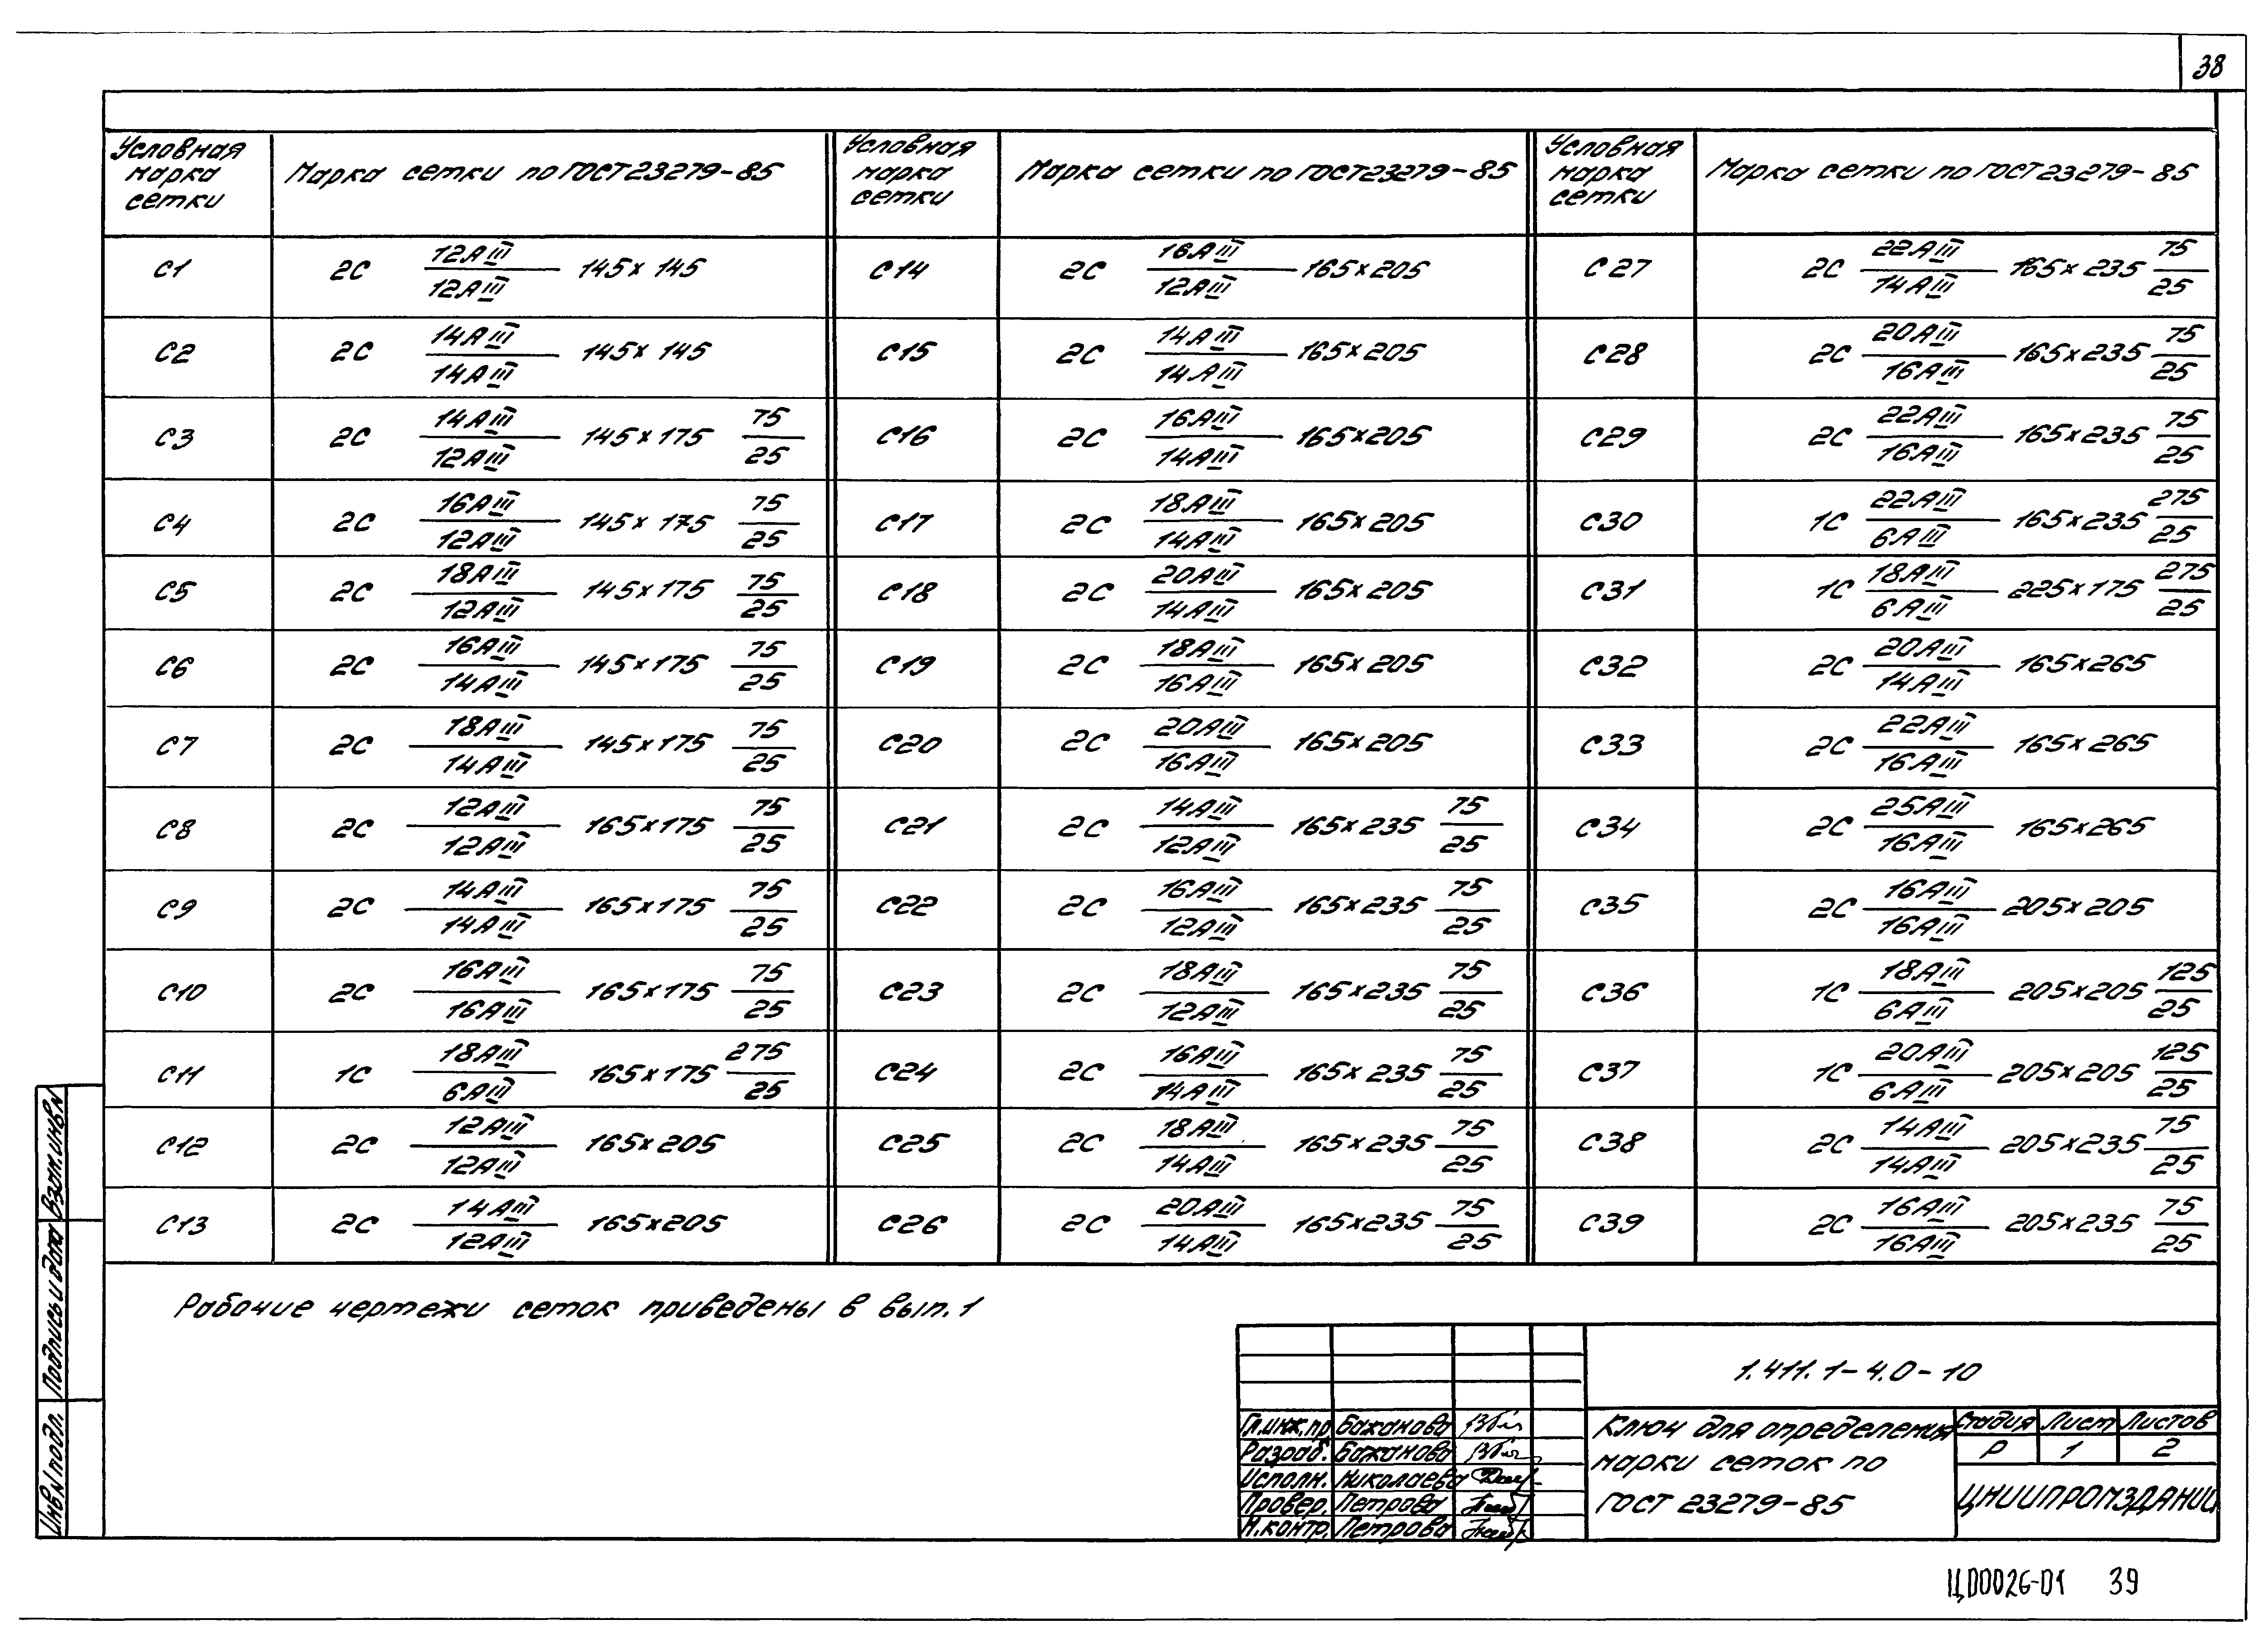 38
Условная марка сетки | Марка сетки по ГОСТ 23279-85 | Условная марка сетки | Марка сетки по ГОСТ 23279-85 | Условная марка сетки | Марка сетки по ГОСТ 23279-85
С1 | 2С 12АIII/12АIII 145х145 | С14 | 2С 16АIII/12АIII 165х205 | С27 | 2С 22АIII/14АIII 165х235 75/25
С2 | 2С 14АIII/14АIII 145х145 | С15 | 2С 14АIII/14АIII 165х205 | С28 | 2С 20АIII/16АIII 165х235 75/25
С3 | 2С 14АIII/12АIII 145х175 75/25 | С16 | 2С 16АIII/14АIII 165х205 | С29 | 2С 22АIII/16АIII 165х235 75/25
С4 | 2С 16АIII/12АIII 145х175 75/25 | С17 | 2С 18АIII/14АIII 165х205 | С30 | 1С 22АIII/6АIII 165х235 275/25
С5 | 2С 18АIII/12АIII 145х175 75/25 | С18 | 2С 20АIII/14АIII 165х205 | С31 | 1С 18АIII/6АIII 225х175 275/25
С6 | 2С 16АIII/14АIII 145х175 75/25 | С19 | 2С 18АIII/16АIII 165х205 | С32 | 2С 20АIII/14АIII 165х265
С7 | 2С 18АIII/14АIII 145х175 75/25 | С20 | 2С 20АIII/16АIII 165х205 | С33 | 2С 22АIII/16АIII 165х265
С8 | 2С 12АIII/12АIII 165х175 75/25 | С21 | 2С 14АIII/12АIII 165х235 75/25 | С34 | 2С 25АIII/16АIII 165х265
С9 | 2С 14АIII/14АIII 165х175 75/25 | С22 | 2С 16АIII/12АIII 165х235 75/25 | С35 | 2С 16АIII/16АIII 205х205
С10 | 2С 16АIII/16АIII 165х175 75/25 | С23 | 2С 18АIII/12АIII 165х235 75/25 | С36 | 1С 18АIII/6АIII 205х205 125/25
С11 | 1С 18АIII/6АIII 165х175 275/25 | С24 | 2С 16АIII/14АIII 165х235 75/25 | С37 | 1С 20АIII/6АIII 205х205 125/25
С12 | 2С 12АIII/12АIII 165х205 | С25 | 2С 18АIII/14АIII 165х235 75/25 | С38 | 2С 14АIII/14АIII 205х235 75/25
С13 | 2С 14АIII/12АIII 165х205 | С26 | 2С 20АIII/14АIII 165х235 75/25 | С39 | 2С 16АIII/16АIII 205х235 75/25
Рабочие чертежи сеток приведены в вып. 1
Взам.инв.N
Подпись и дата
Инв.N подл.
1.411.1-4.0-10
Гл.инж.пр Бажанова
Разраб. Бажанова
Исполн. Николаева
Провер. Петрова
Н.контр. Петрова
Ключ для определения
марки сеток по
ГОСТ 23279-85
Стадия Лист Листов
Р 1 2
ЦНИИПРОМЗДАНИЙ
ЦД0026-01 39